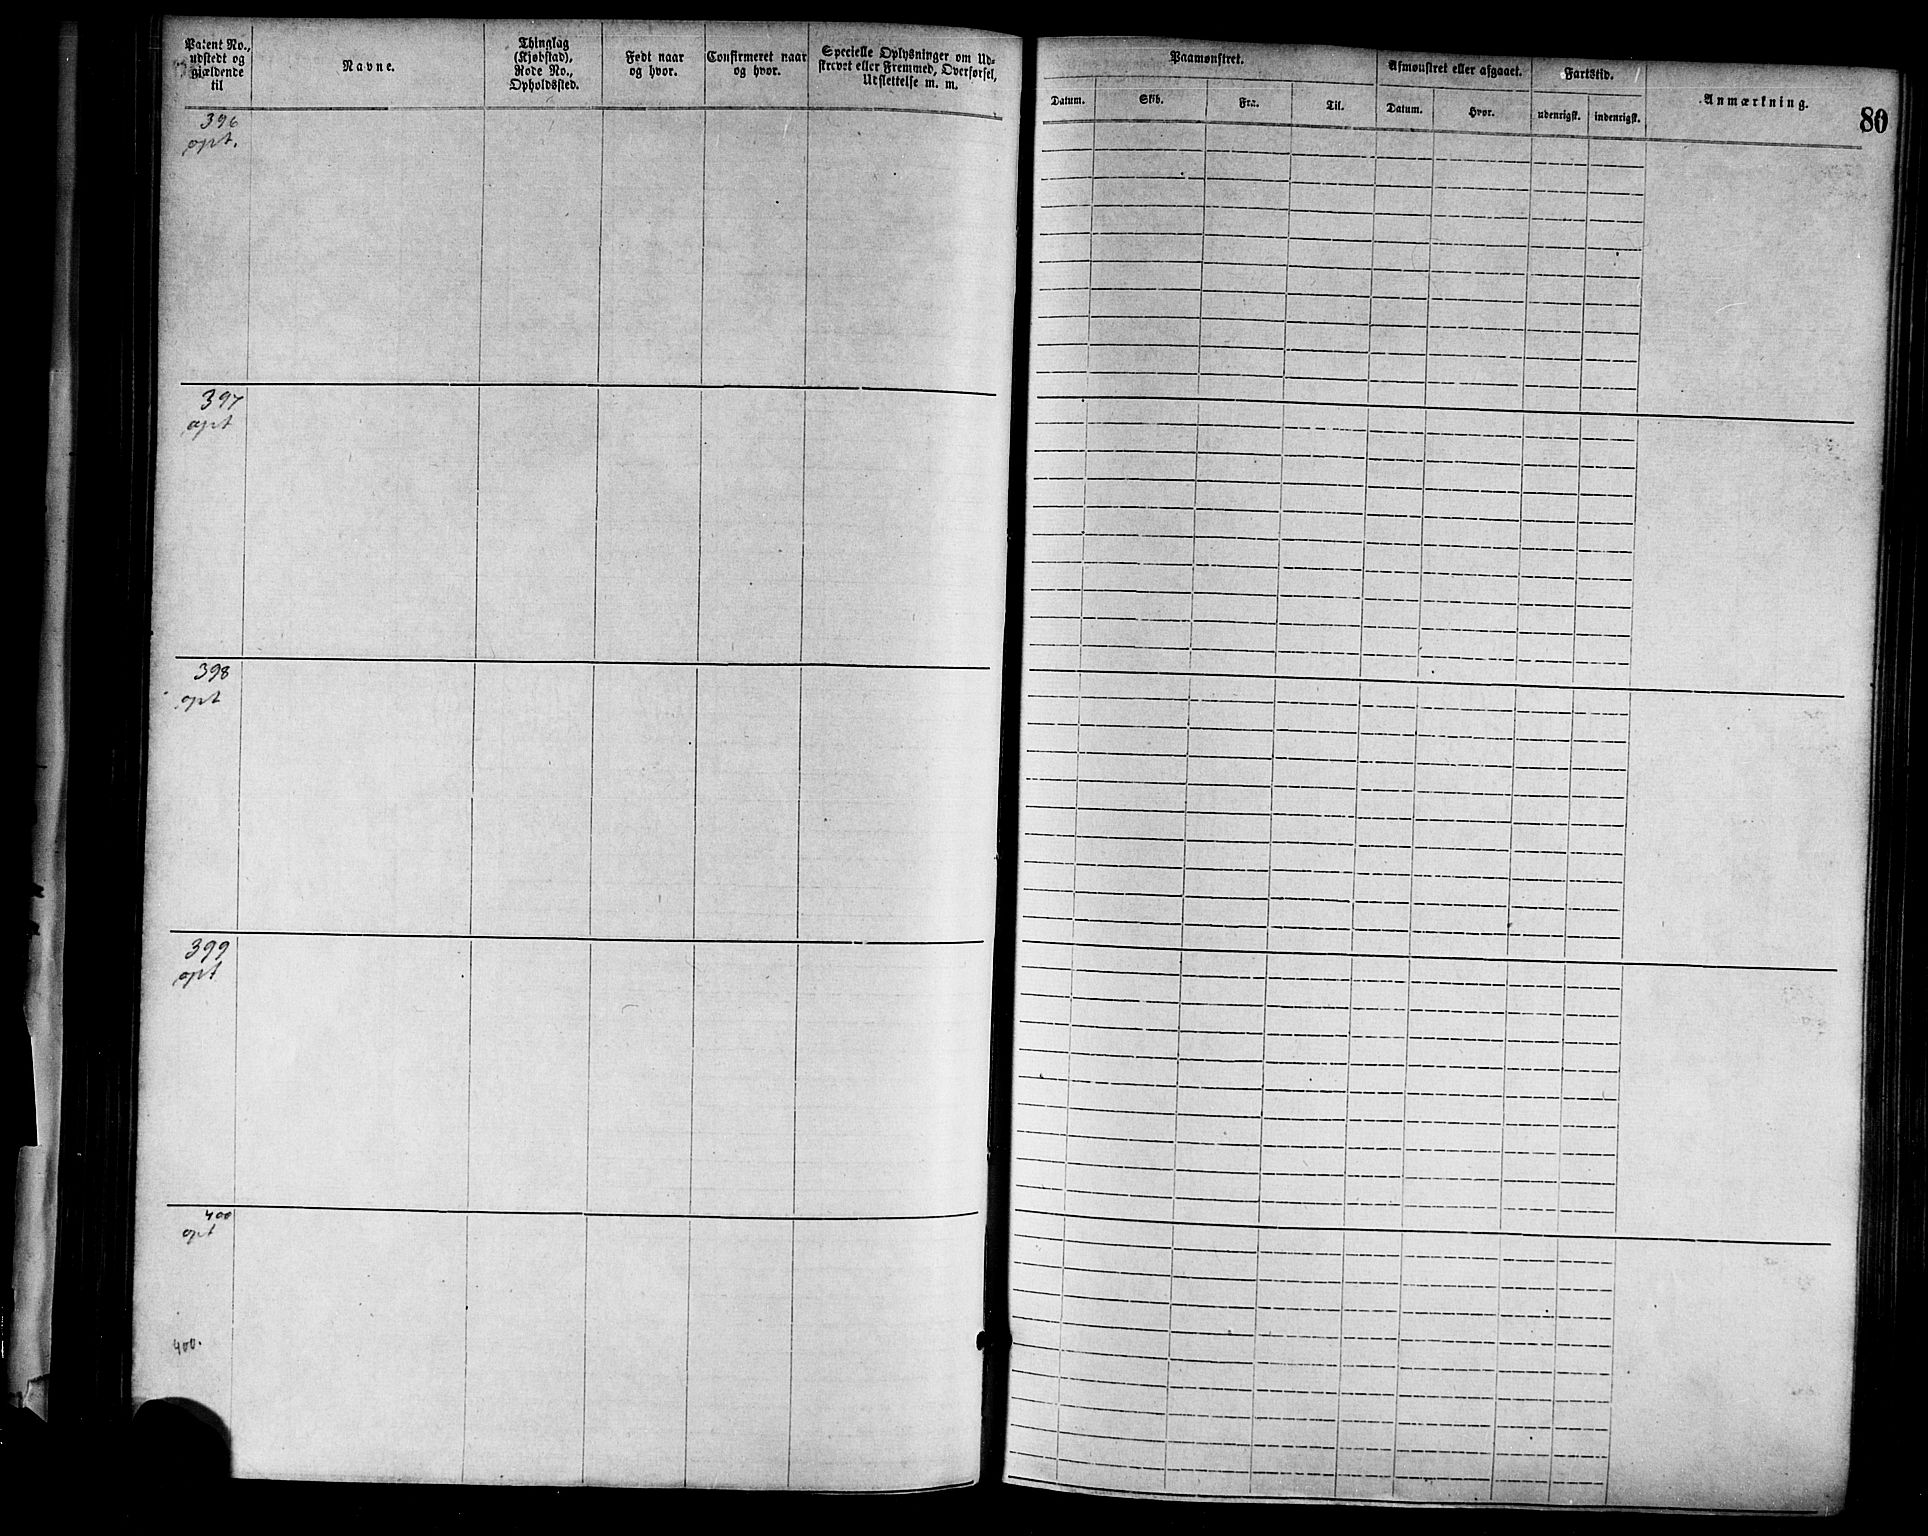 Patent No.,
udstedt og
gjældende
til
Navne.
Thinglag
(Kjøbstad),
Rode No.,
Opholdssted.
Født naar
og hvor.
Confirmeret naar
og hvor.
Specielle Oplysninger om Ud-
skrevet eller Fremmed, Overførsel,
Udslettelse m. m.
Paamønstret.
Datum.
Skib.
Fra.
Til.
Afmønstret eller afgaaet.
Datum.
Hvor.
Fartstid.
udenrigsk.
indenrigsk.
Anmærkning.
80
396
opt.
397
opt
398
opt
399
opt
400
opt
400.